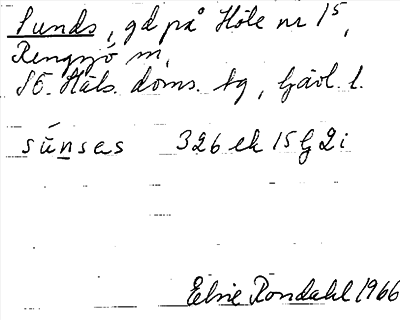 Sunds, gd på Höle nr 1⁵,
Rengsjö sn,
SÖ. Häls. doms. tg, Gävl. l.
súnsas 326 ek 15 G 2 i
Elsie Rondahl 1966